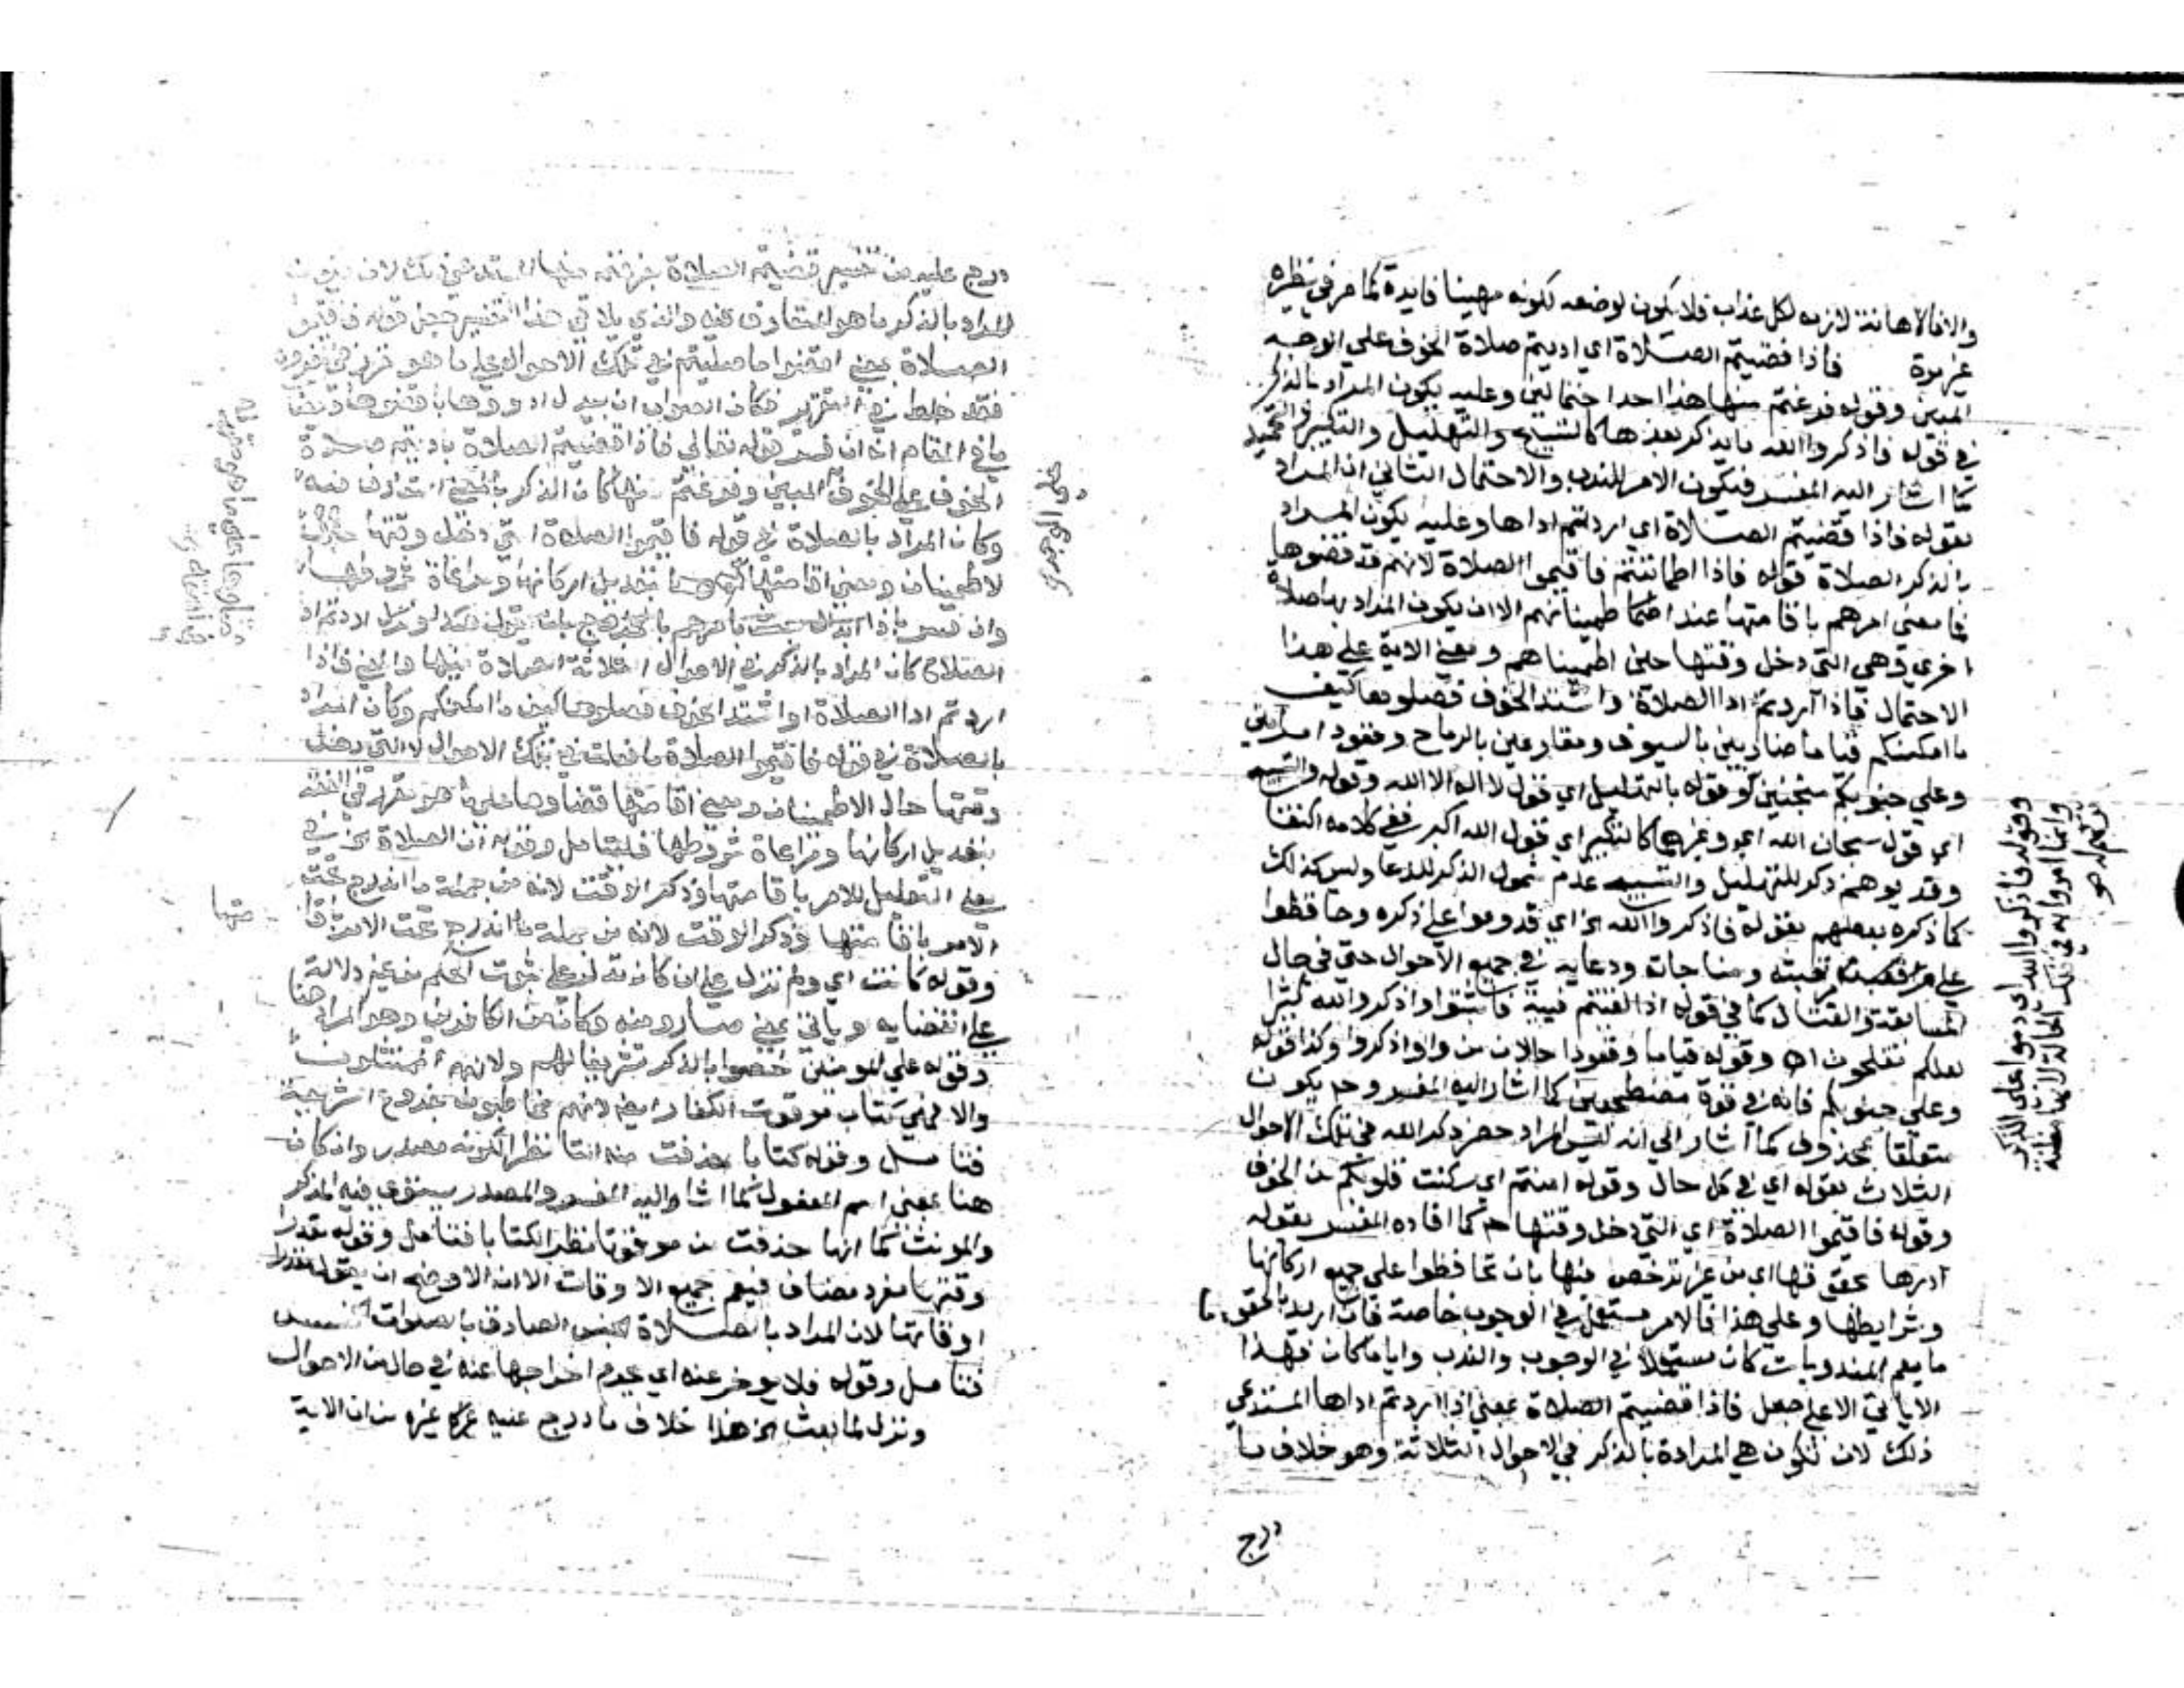 والا فالاهانة لازمه لكل عذاب فلا يكون لوضعه لكونه مهينا فايدة كما مر في نظره
غير مرة فاذا قضيتم الصلاة اي اديتم صلاة الخوف على الوجه
المبين وقوله فرغتم منها هذا احد احتمالين وعليه يكون المراد بالذكر
في قوله فاذكروا الله ما يذكر بعدها كالتسبيح والتهليل والتكبير والتحميد
كما اشار اليه المفسر فيكون الامر للندب والاحتمال الثاني ان المراد
بقوله فاذا قضيتم الصلاة اي اردتم اداها وعليه يكون المراد
بالذكر الصلاة فقوله فاذا اطماننتم فاقيموا الصلاة لانهم قد قضوها
فما معنى امرهم باقامتها عند اطمينانهم الا ان يكون المراد بها صلاة
اخرى وهي التي دخل وقتها حين اطميناهم ومعنى الاية على هذا
الاحتمال فاذا اردتم ادا الصلاة واشتد الخوف فصلوها كيف
ما امكنكم قياما ضاربين بالسيوف ومقارعين بالرماح وقعودا
وعلى جنوبكم مثخنين قوله بالتهليل اي قول لا اله الا الله وقوله والتسبيح
اي قول سبحان الله اي وغيرها كالتكبير اي قول الله اكبر ففي كلامه اكتفا
وقد يوهم ذكر للتهليل والتسبيح عدم شمول الذكر للدعا وليس كذلك
كما ذكره بعضهم بقوله فاذكروا الله الخ اي فدوموا على ذكره وحافظوا
على مراقبته ومناجاته ودعايه في جميع الاحوال حتى في حال
المسابقة والقتال كما في قوله اذا لقيتم فيية فاثبتوا واذكروا الله كثيرا
لعلكم تفلحون اه وقوله قياما وقعودا حالان من واو اذكروا وكذا قوله
وعلى جنوبكم فانه في قوة مضطجعين كما اشار اليه المفسر وح يكون
متعلقا بمحذوف كما اشار الى انه ليس المراد حصر ذكر الله في تلك الاحوال
الثلاث بقوله اي في كل حال وقوله امنتم اي سكنت قلوبكم من الخوف
وقوله فاقيموا الصلاة اي التي دخل وقتها ح كما افاده المفسر بقوله
ادوها بحقوقها اي من غير ترخص فيها بان تحافظوا على جميع اركانها
وشرايطها وعلى هذا فالامر مستعمل في الوجوب خاصة فان اريد بالحقوق ما
ما يعم المندوبات كان مستعملا في الوجوب والندب وايا ما كان فهذا
لا ياتي الا على جعل فاذا قضيتم الصلاة بمعنى اذا اردتم اداها المستدعي
ذلك لان تكون هي المرادة بالذكر في الاحوال الثلاثة وهو خلاف ما
درج
وقوله فاذكروا الله اي دوموا على الذكر
وانما امروا به في تلك الحالة لانها مظنة
درج عليه من تفسير قضيتم الصلاة بفرغتم منها المستدعي ذلك لان يكون
المراد بالذكر ما هو المتعارف منه والذي يلاقي هذا التفسير جعل قوله فاقيموا
الصلاة بمعنى اقضوا ما صليتم في تلك الاحوال على ما هو
فقد خلط في التقرير فكان الصواب ان يبدل ادوها باقضوها
ما في المقام انه ان فسر قوله تعالى فاذا قضيتم الصلاة باديتم صلاة
الخوف على الخوف المبين وفرغتم منها كان الذكر بالمعنى المتعارف منه
وكان المراد بالصلاة في قوله فاقيموا الصلاة التي دخل وقتها
لاطمينان ومعنى اقامتها تعديل اركانها ومراعاة شروطها
وان فسر باذا
الصلاة كان المراد بالذكر في الاحوال الثلاثة الصلاة فيها والمعنى فاذا
اردتم ادا الصلاة واشتد الخوف فصلوها كيف ما امكنكم وكان المراد
بالصلاة في قوله فاقيموا الصلاة ما فعلت في تلك الاحوال لا التي دخل
وقتها حال الاطمينان ومعنى اقامتها قضاوها على ما هو مقرر في الفقه
بتعديل اركانها ومراعاة شروطها فليتامل وقوله ان الصلاة الخ في
معنى التعليل للامر باقامتها وذكر الوقت لانه من جملة ما اندرج تحت
الامر باقامتها وذكر الوقت لانه من جملة ما اندرج تحت الامر
وقوله كانت اي ولم تزل على ان كان تدل على ثبوت الحكم من غير دلالة
على انقضايه وياتي بمعنى صار ومنه وكان من الكافرين وهو المراد هنا
وقوله على المومنين خصوا بالذكر تشريفا لهم ولانهم الممتثلون
والا فهي كتاب موقوت الكفار ايضا لانهم مخاطبون بفروع الشريعة
فتامل وقوله كتابا حذفت منه التا نظرا لكونه مصدرا وان كان
هنا بمعنى اسم المفعول كما اشار اليه المفسر والمصدر يستوي فيه المذكر
والمونث كما انها حذفت من موقوتا نظرا لكتابا فتامل وقوله مقدرا
وقتها مفرد مضاف فيعم جميع الاوقات الا ان الاوضح ان يقول مقدرا
اوقاتها لان المراد بالصلاة الجنس الصادق بالصلوات الخمس
فتامل وقوله فلا يوخر عنه اي بعدم اخراجها عنه في حال من الاحوال
ونزل لما بعث الخ هذا خلاف ما درج عليه غيره من ان الاية